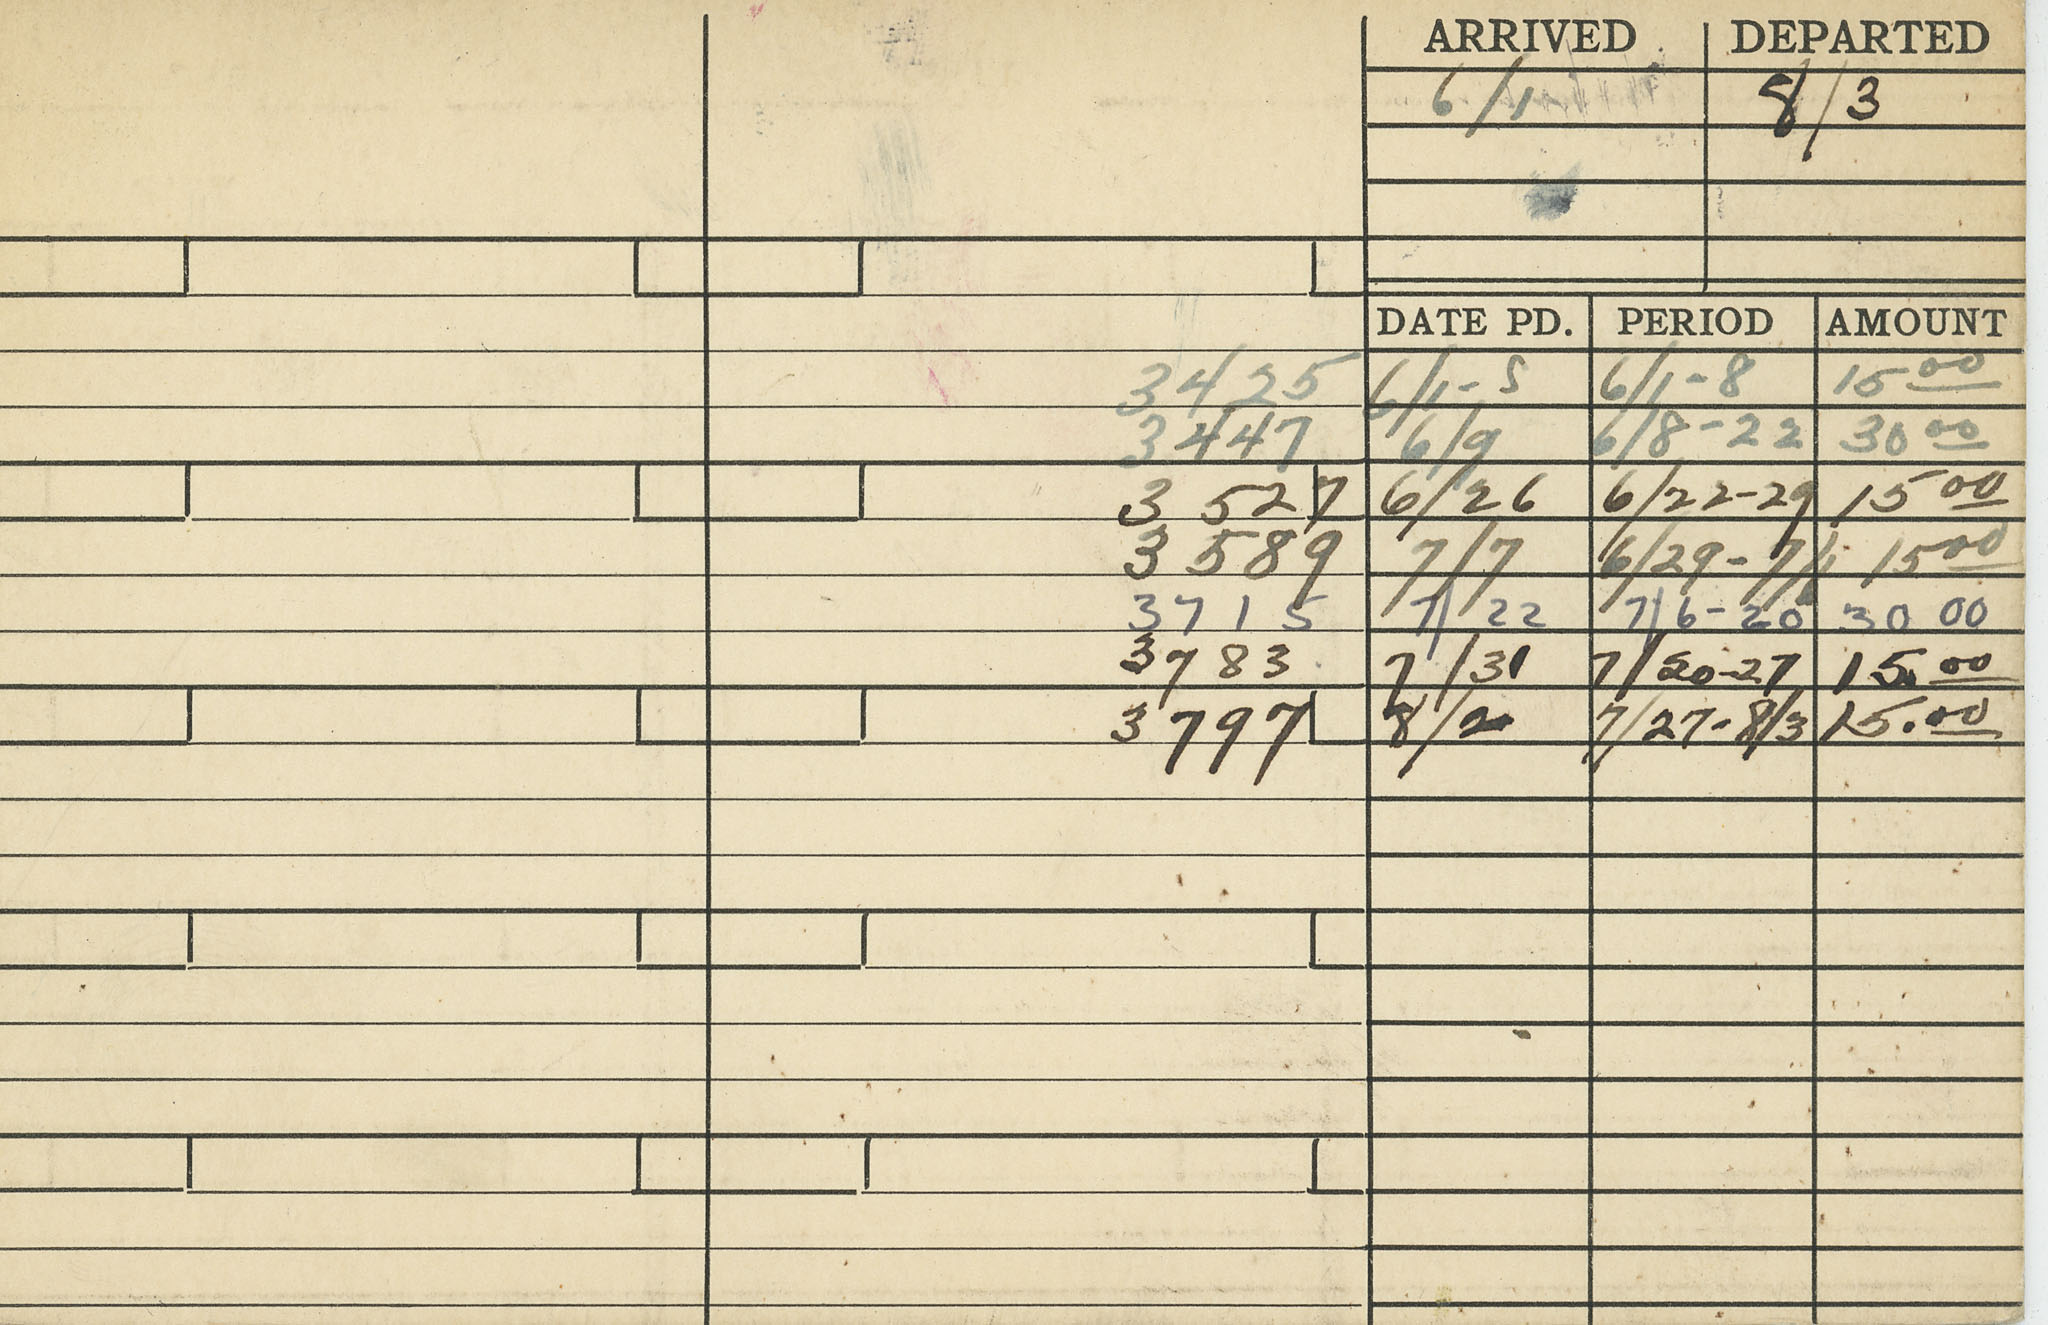 ARRIVED DEPARTED
6/1 8/3
DATE PD. PERIOD AMOUNT
3425 6/1-5 6/1-8 15 00
3447 6/9 6/8-22 30 00
3527 6/26 6/22-29 15 00
3589 7/7 6/29-7/6 15 00
3715 7/22 7/6-20 30 00
3783 7/31 7/20-27 15.00
3797 8/2 7/27-8/3 15.00